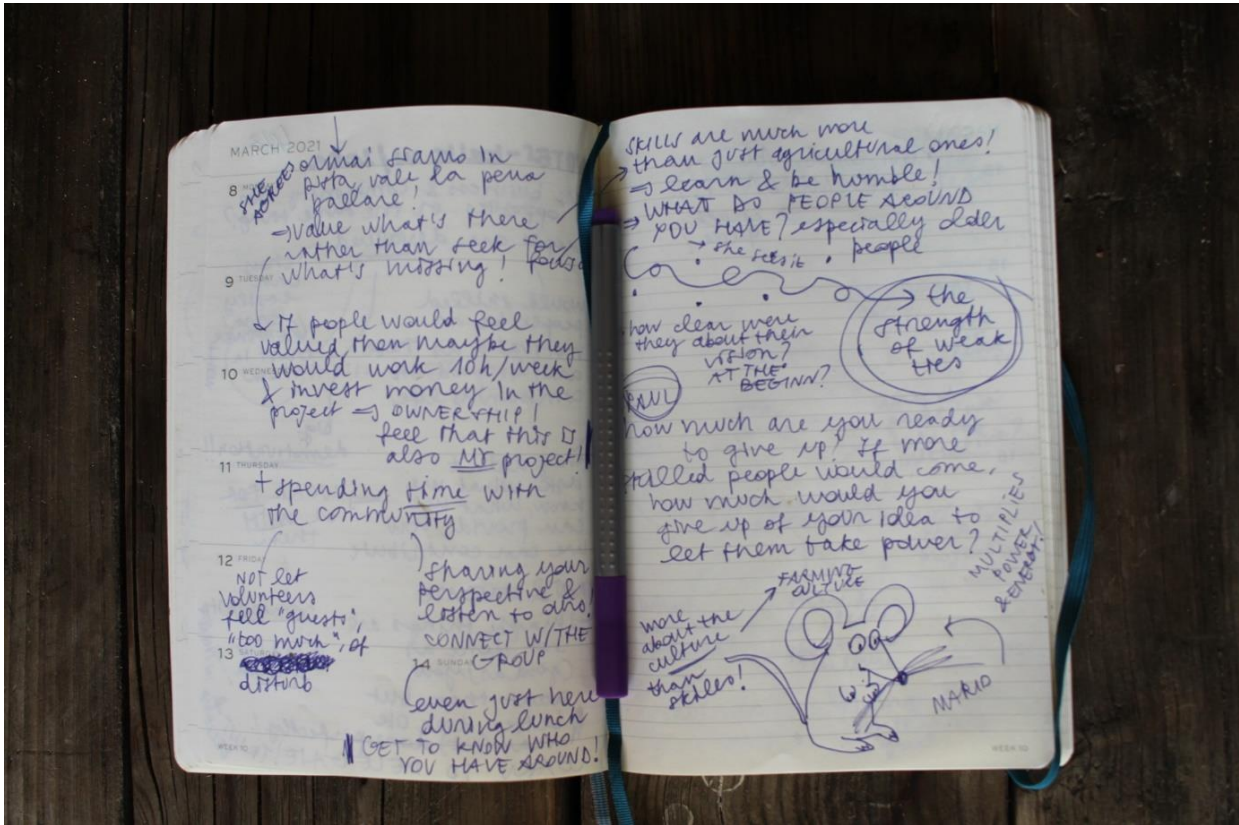 MARCH 2021
8
SHE AGREES
ormai siamo in
pista, vale la pena
ballare!
→ value what's there
rather than seek for
what's missing! focus
9 TUESDAY
→ If pople would feel
valued then maybe they
10 WEDNE
would work 10h/week
& invest money in the
project → OWNERSHIP!
feel that this is
also MY project!
11 THURSDAY
+ spending time with
the community
12 FRIDAY
NOT let
volunteers
fell "guests",
"too much", of
13 SATURDAY
disturb
sharing your
perspective &
listen to ohs!
CONNECT W/THE
14 SUNDAY
GROUP
even just here
during lunch
GET TO KNOW WHO
YOU HAVE AROUND!
WEEK 10
SKILLS are much more
→ than just agricultural ones!
→ learn & be humble!
→ WHAT DO PEOPLE AROUND
YOU HAVE? especially older
people
→ she sees it
→ the
strength
of weak
ties
how clear were
they about their
vision?
AT THE
BEGINN?
PAUL
how much are you ready
to give up? If more
skilled people would come,
how much would you
give up of your idea to
let them take power?
FARMING
CULTURE
more
about the
culture
than
skills!
MULTIPLIES
POWER
& ENERGY!
MARIO
WEEK 10